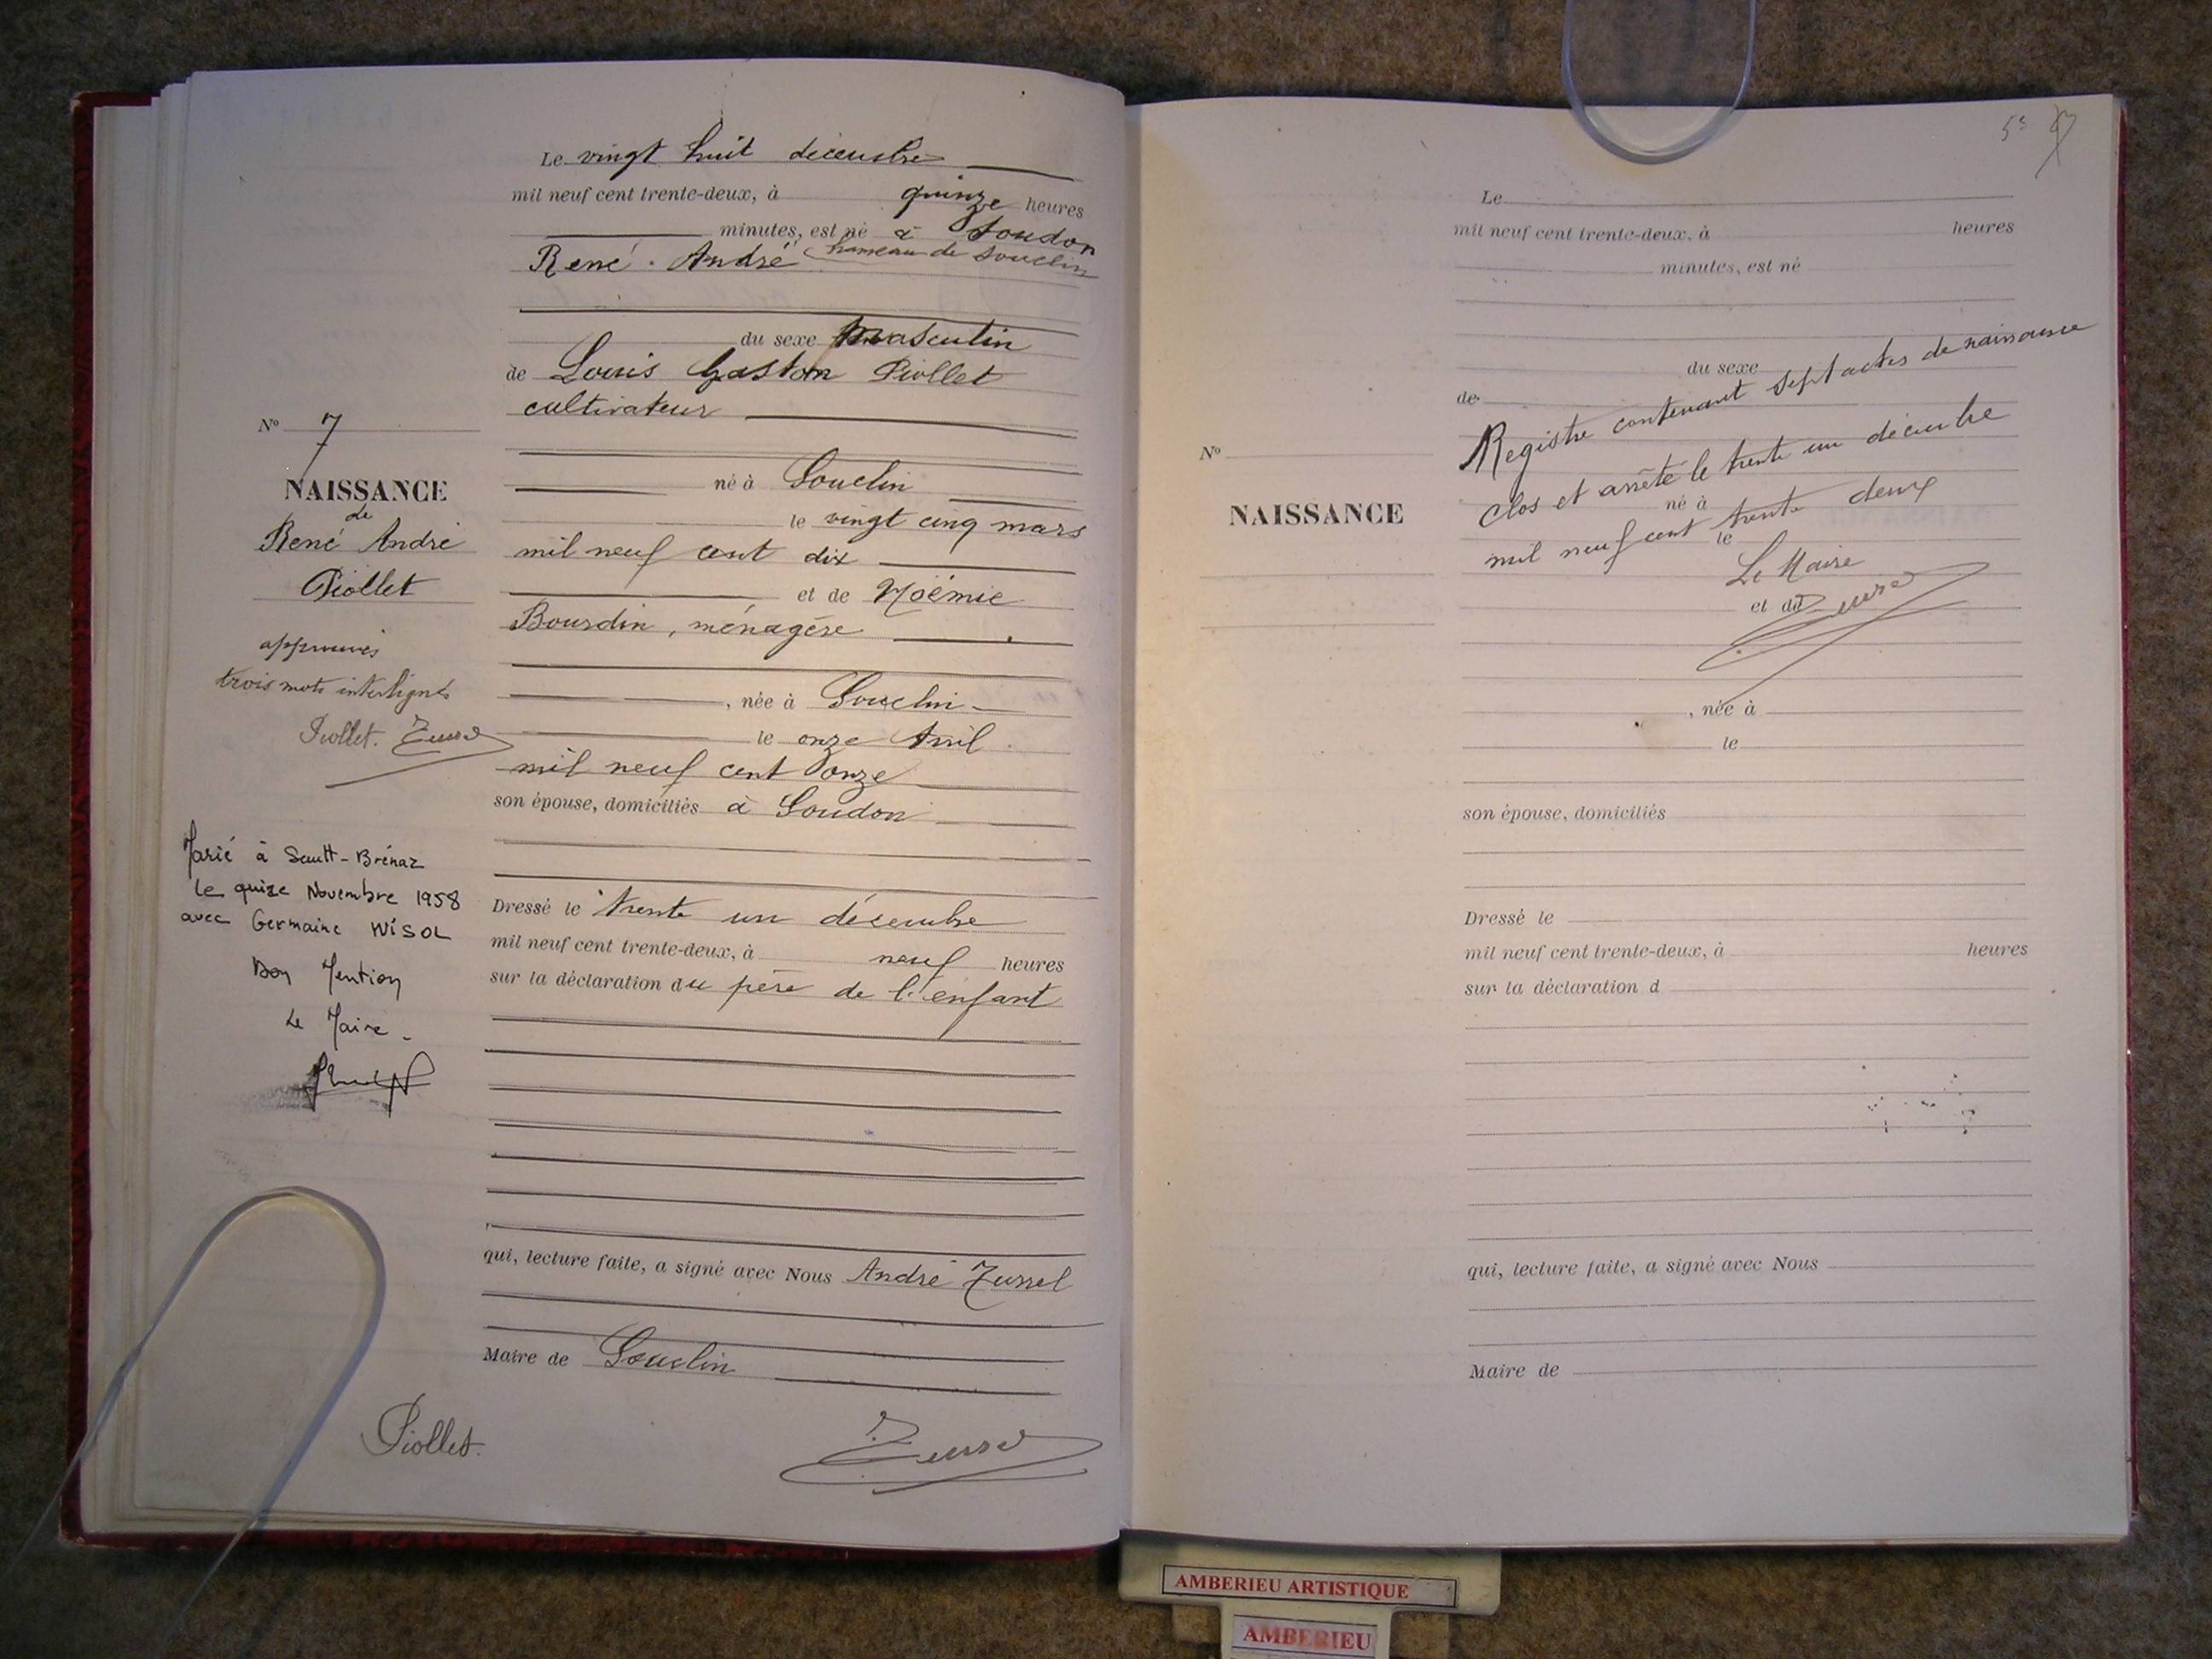 Le vingt huit décembre
mil neuf cent trente-deux, à quinze heures
minutes, est né à Soudon
hameau de Souclin
René André
du sexe masculin
de Louis Gaston Piollet
cultivateur
né à Souclin
le vingt cinq mars
mil neuf cent dix
et de Noémie
Bourdin, ménagère
, née à Souclin
le onze Avril
mil neuf cent onze
son épouse, domiciliés à Soudon
Dressé le trente un décembre
mil neuf cent trente-deux, à neuf heures
sur la déclaration du père de l'enfant
qui, lecture faite, a signé avec Nous André
Maire de Souclin
Piollet.
No 7
NAISSANCE
de
René André
Piollet
approuvés
trois mots interlignés
Piollet.
Marié à Sault-Brénaz
le quize Novembre 1958
avec Germaine WISOL
Don Mention
Le Maire
53
Le
mil neuf cent trente-deux, à heures
minutes, est né
du sexe
de
Registre contenant sept actes de naissance
Clos et arrêté le trente un décembre
né à
mil neuf cent trente deux
le
Le Maire
et de
, née à
le
son épouse, domiciliés
Dressé le
mil neuf cent trente-deux, à heures
sur la déclaration d
qui, lecture faite, a signé avec Nous
Maire de
No
NAISSANCE
AMBERIEU ARTISTIQUE
AMBERIEU